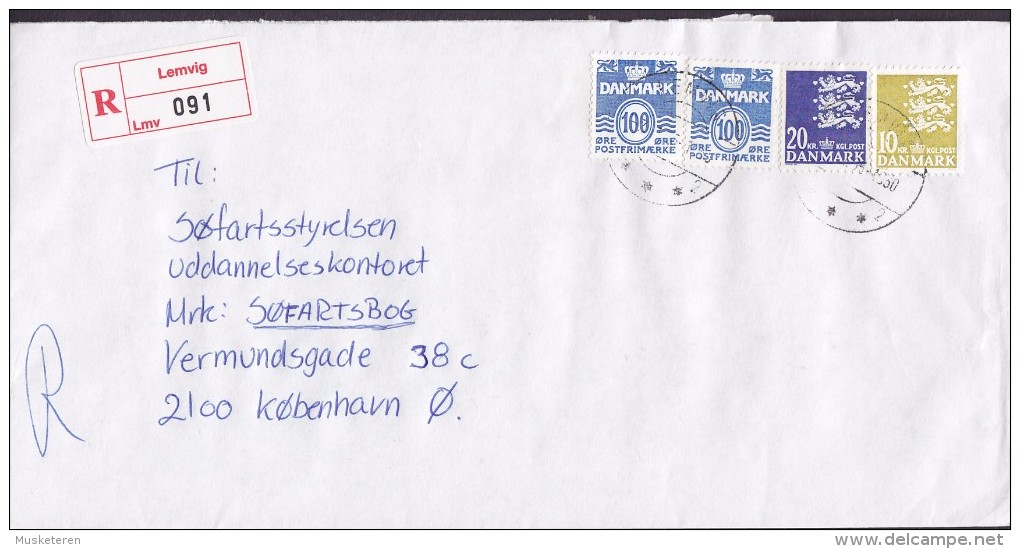 Lemvig
R
091
Lmv
DANMARK
100
ØRE ØRE
POSTFRIMÆRKE
DANMARK
100
ØRE ØRE
POSTFRIMÆRKE
20 KR. KGL.POST
DANMARK
10 KR. KGL.POST
DANMARK
Til:
Søfartsstyrelsen
Uddannelseskontoret
Mrk: SØFARTSBOG
Vermundsgade 38 c
2100 København Ø.
R
Musketeren
delcampe.net